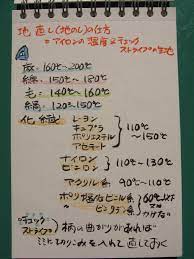 地直し(地のし)の仕方
=アイロンの温度とチェック
ストライプの生地
麻=160℃~200℃
綿=150℃~180℃
毛=140℃~160℃
絹=120℃~150℃
化繊
レーヨン
キュプラ
ポリエステル
アセテート
110℃~150℃
ナイロン
ビニロン
110℃~130℃
アクリル系 90℃~110℃
ポリ塩化ビニル系
60℃以下
かけな
"チェック"
ストライプの
柄の曲がりがあれば
入れて直しておく